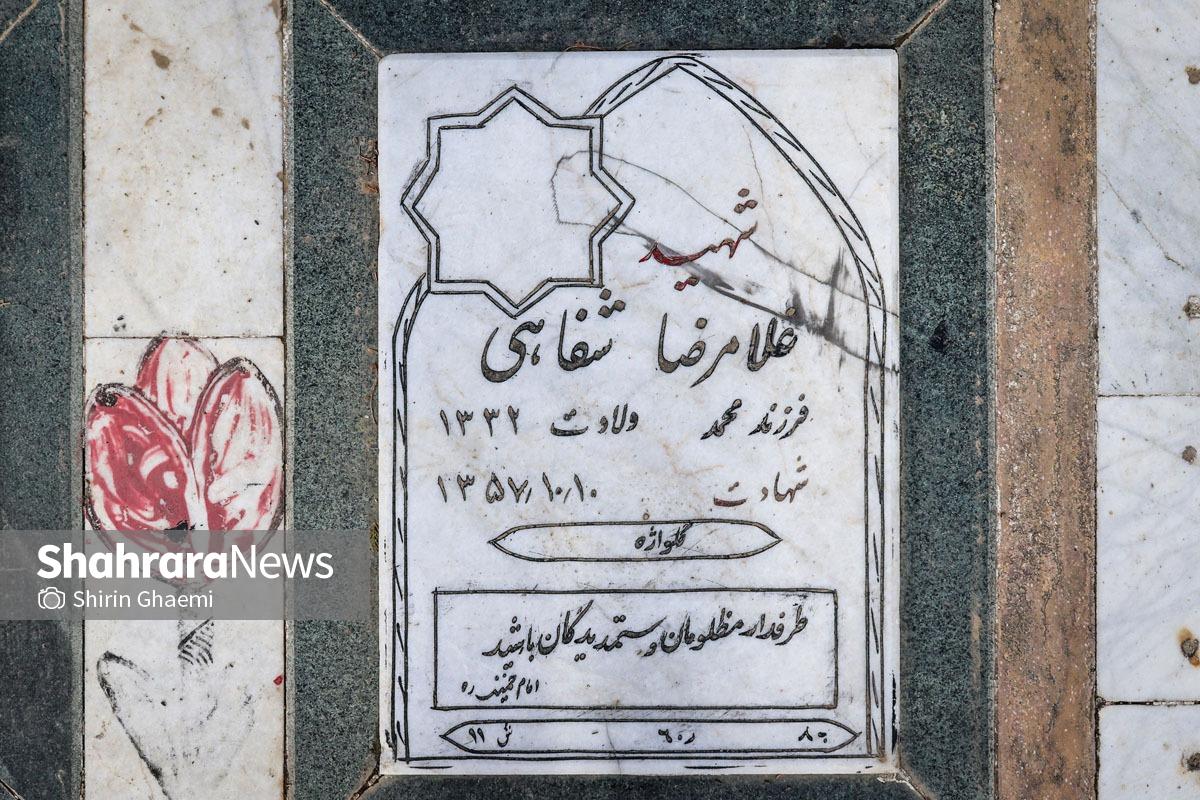 شهید
غلامرضا شفاهی
فرزند محمد ولادت ۱۳۳۲
شهادت ۱۳۵۷٫۱۰٫۱۰
گلواژه
طرفدار مظلومان و ستمدیدگان باشید
امام خمینی ره
ب ۸۰ ر ٦۰ ش ۹۹
ShahraraNews
Shirin Ghaemi